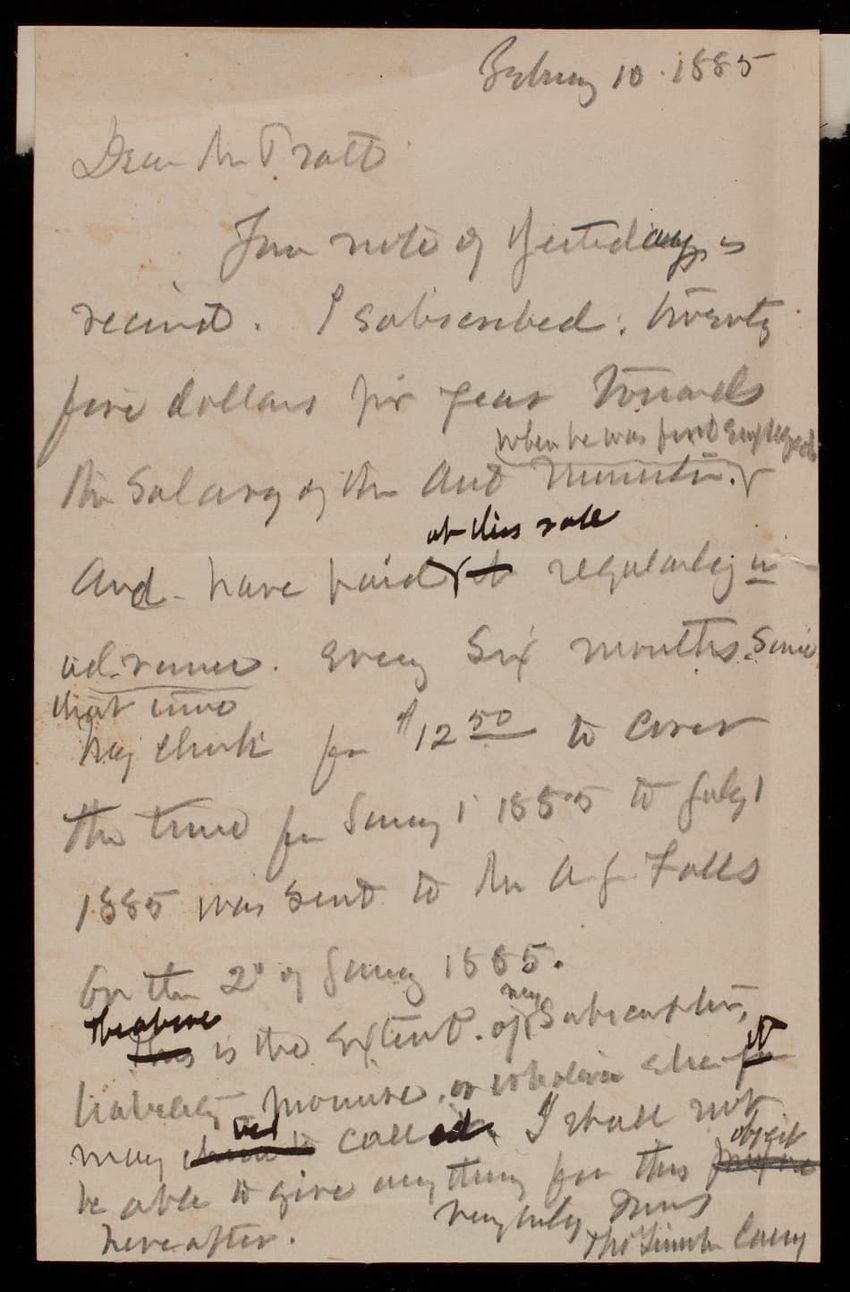 February 10. 1885
Dear Mr Pratt
Your note of yesterday, is
received. I subscribed, twenty
five dollars per year towards
when he was first employed
the Salary of the Asst Minister.
at this rate
And have paid it regularly in
advance. every six months. Since
that time
My check for $12 50 to cover
the time from January 1 1885 to July 1
1885 was sent to Mr A. J. Falls
On the 2d of January 1885.
the above my
This is the extent of subscription,
it
liability, promise, or whatever else
be
may called. I shall not
object
be able to give anything for this purpose
very truly Yours
hereafter. Thos Lincoln Casey